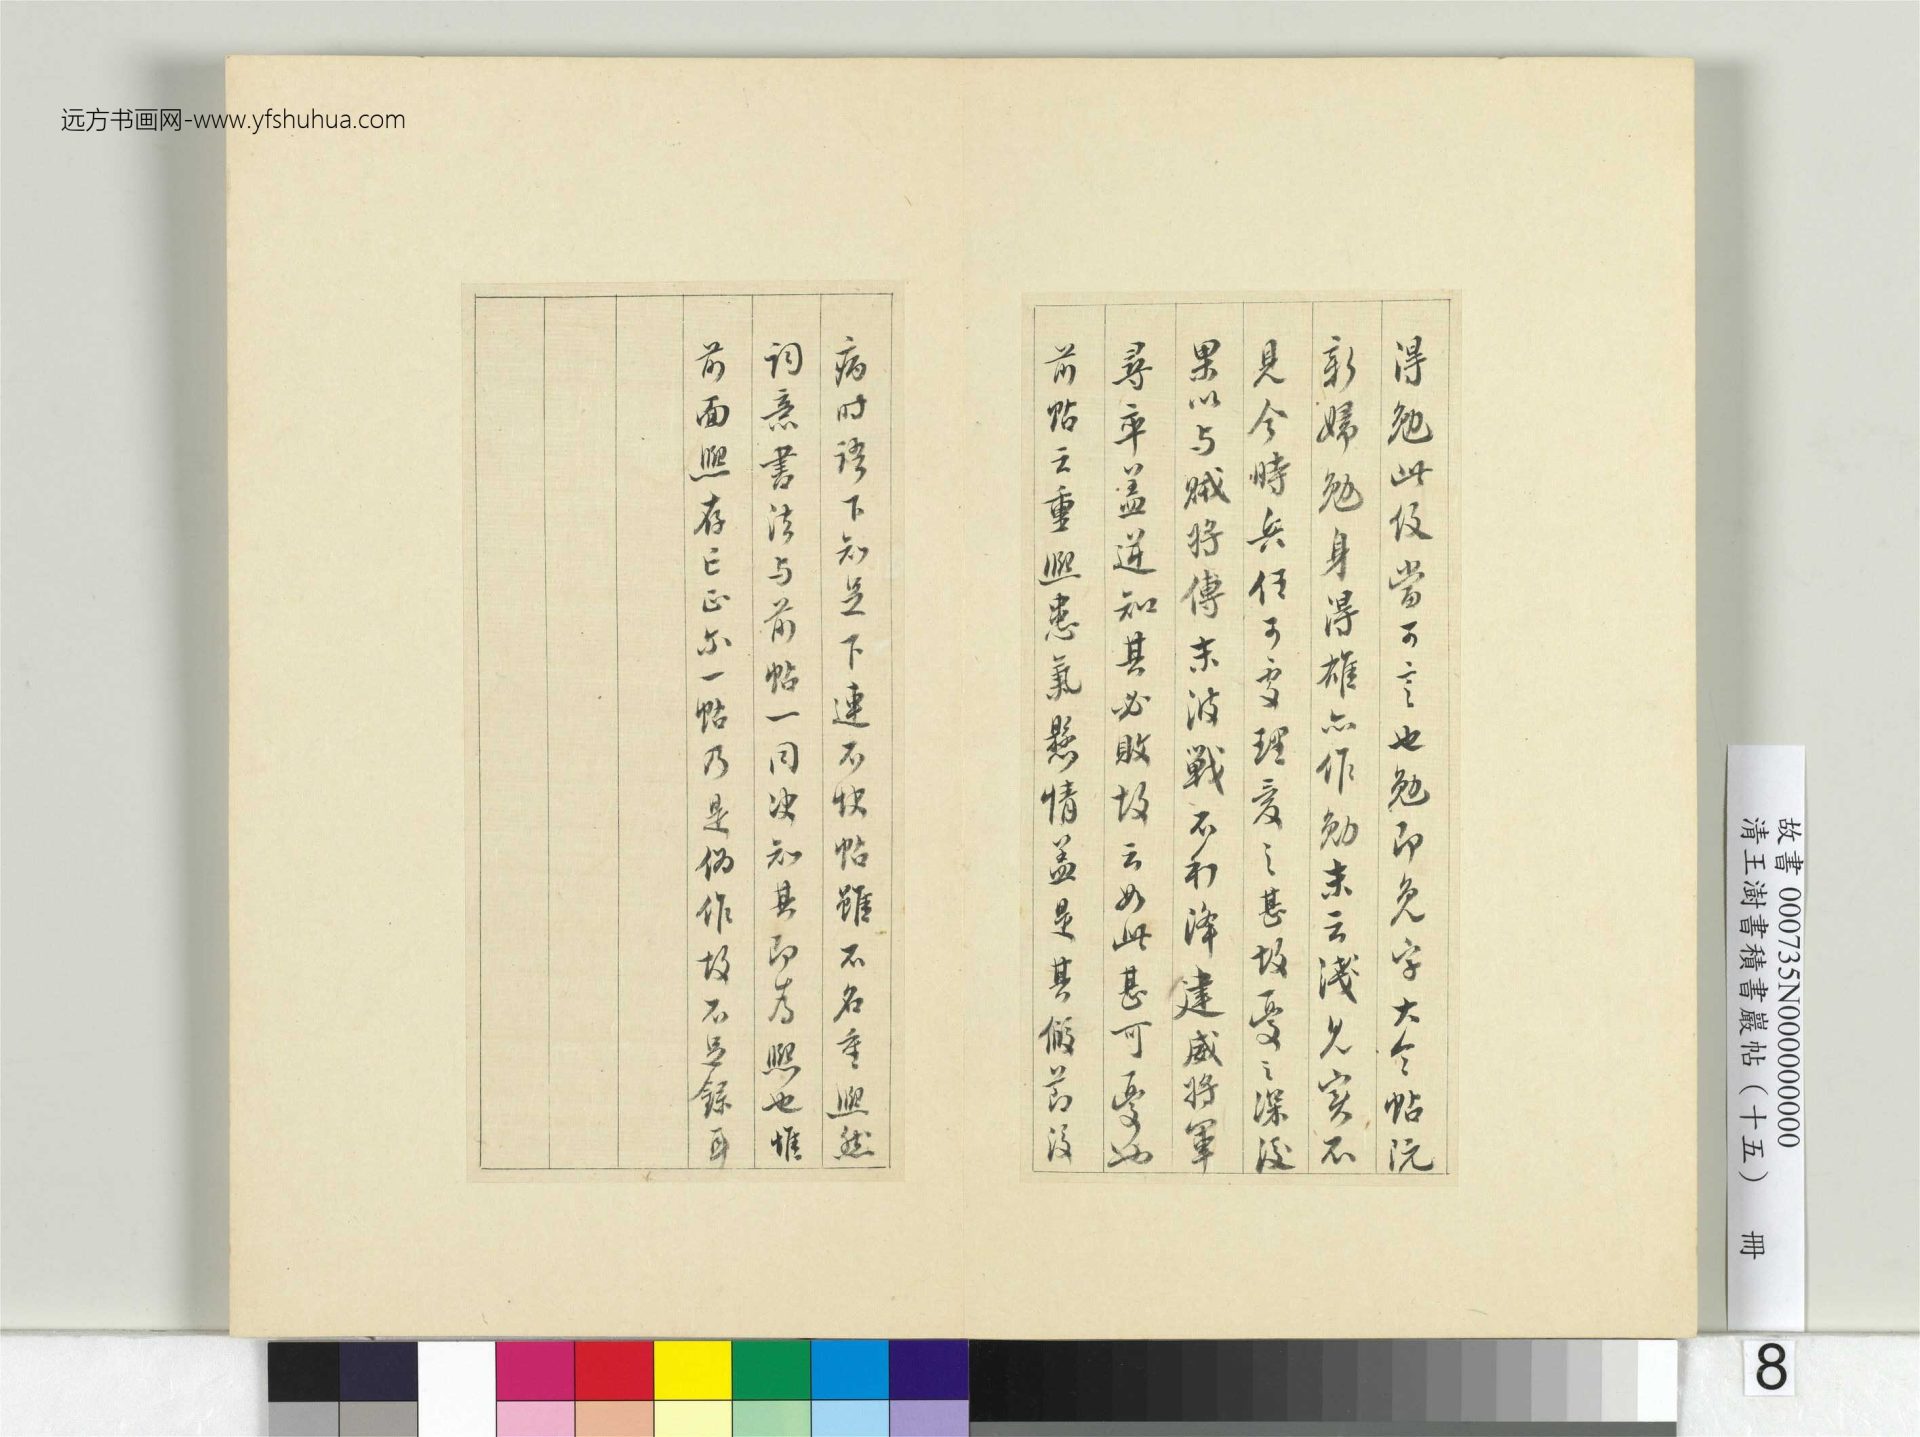 得勉此役當可言也勉即免字大令帖阮
新婦勉身得雄亦作勉末云淺見實不
見今時兵任可處理憂之甚故憂之深後
果以与賊將傅末波戰不利降建威將軍
尋卒盖逆知其必敗故云如此甚可憂也
前帖云重熙患氣懸情盖是其假節後
病时語下知足下連不快帖雖不名重熙然
詞意書法与前帖一同决知其即为熙也惟
前面熙存亡正尔一帖乃是偽作故不足錄耳
远方书画网-www.yfshuhua.com
故書 000735N000000000
清王澍書積書巖帖（十五） 冊
8